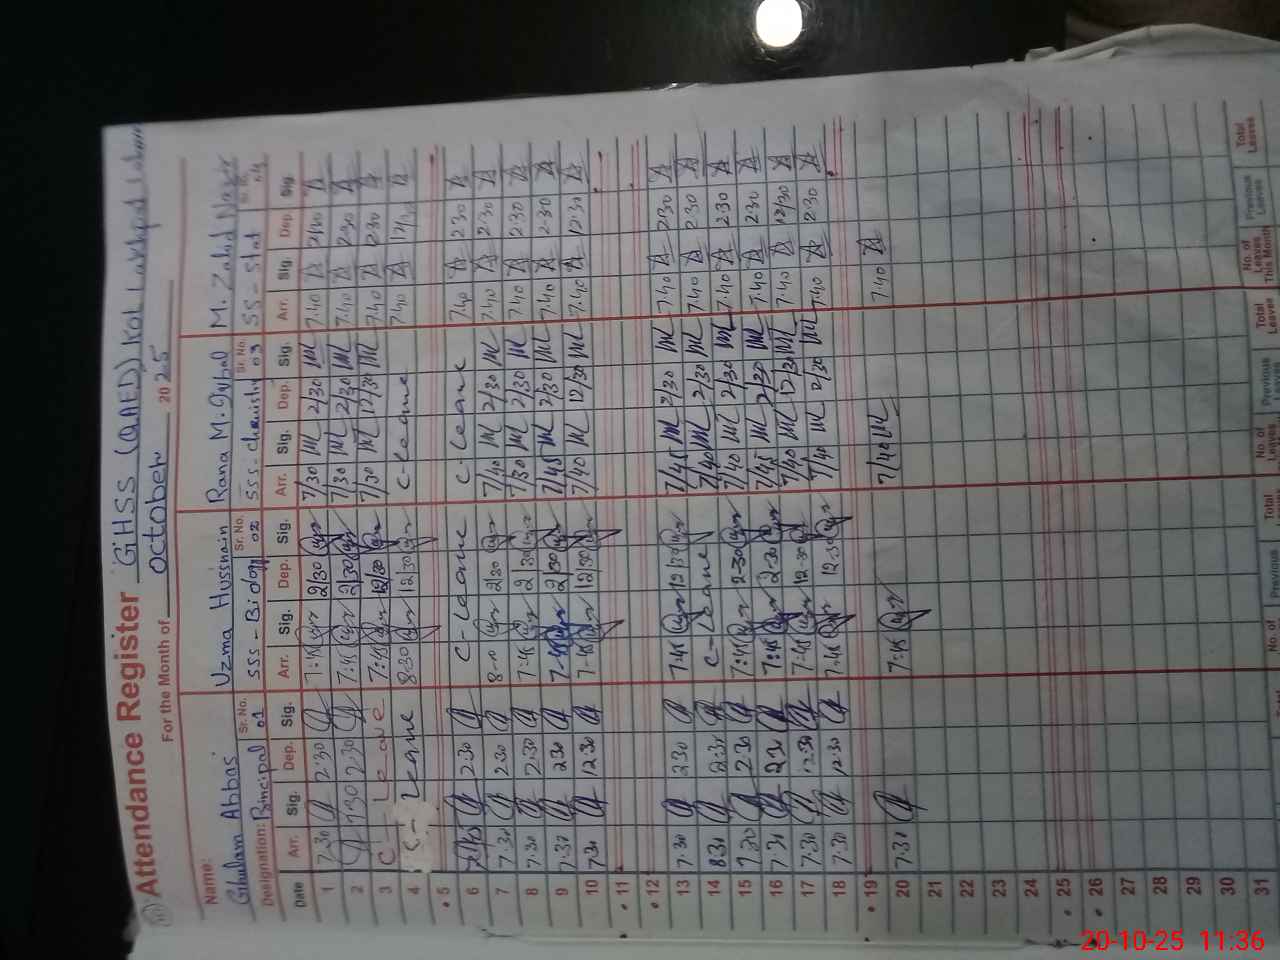 Attendance Register GHSS (QAED) Kot
For the Month of October 2025
Name: Ghulam Abbas Uzma Hussnain Rana M. Iqbal M. Zahid Nazir
Designation: Principal Sr. No. 01 SSS-Biology Sr. No. 02 SSS-Chemistry Sr. No. 03 SS-Stat
Date Arr. Sig. Dep. Sig. Arr. Sig. Dep. Sig. Arr. Sig. Dep. Sig. Arr. Sig. Dep Sig.
1 7.30 2.30 7:45 2/30 7/30 2/30 7.40
2 2.30 7:45 2/30 7/30 2/30 7.40 2.30
3 C-Leave 7:45 12/30 7/30 12/30 7.40 2.30
4 C-Leave 8:30 12/30 C-Leave 7.40 12/30
5
6 2.30 C-Leave C-Leave 7.40 2.30
7 7.30 2.30 2/30 7/40 2/30 7.40 2.30
8 7.30 2.30 7:45 2/30 7/30 2/30 7.40 2.30
9 7.30 2.30 7:45 2/30 7/45 2/30 7.40 2.30
10 7.30 12.30 7:45 12/30 7/40 12/30 7.40 12.30
11
12
13 7.30 2.30 7:45 12/30 7/45 2/30 7.40 2.30
14 8.30 2.30 C-Leave 7/40 2/30 7.40 2.30
15 7.30 2.30 7:45 2.30 7/40 2/30 7.40 2.30
16 7.30 2.30 7:45 2.30 7/45 2/30 7.40 2.30
17 7.30 12.30 7:45 12.30 7/40 12/30 7.40 12/30
18 7.30 12.30 7:45 12.30 7/40 2/30 7.40 2.30
19
20 7.30 7:45 7/40 7.40
21
22
23
24
25
26
27
28
29
30
31
No. of Previous Total No. of Leaves Previous Total Leaves No. of Leaves This Month Previous Leaves Total Leaves
20-10-25 11:36